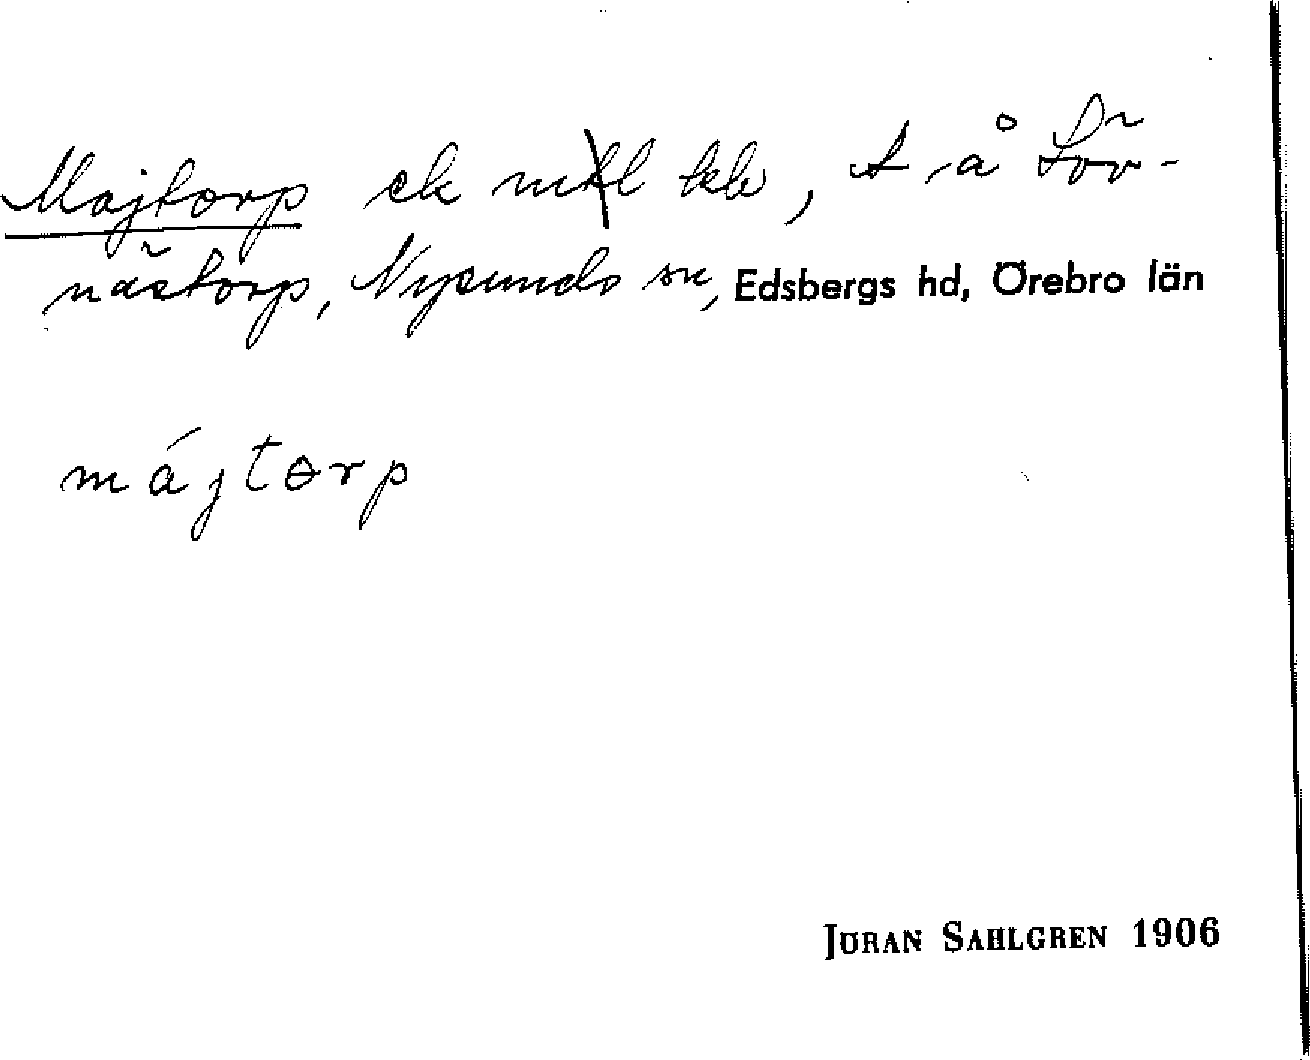 Majtorp ek mtl tele, t å Sör-
nästorp, Nysunds sn, Edsbergs hd, Örebro län
májtorp
JÖRAN SAHLGREN 1906